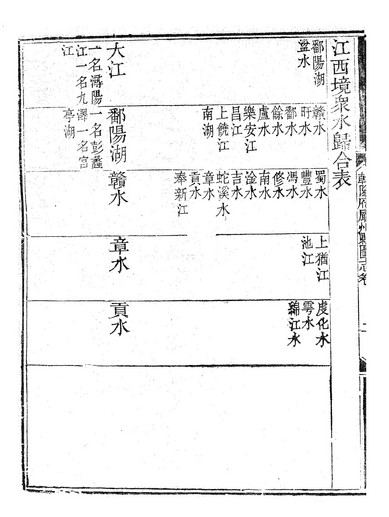 江西境衆水歸合表
鄱陽湖
湓水
大江
一名潯陽
江一名九
江
贛水
旴水
鄱水
餘水
盧水
樂安江
昌江
上饒江
南湖
鄱陽湖
一名彭蠡
澤一名宮
亭湖
蜀水
豐水
馮水
修水
南水
淦水
吉水
蛇溪水
章水
貢水
奉新江
贛水
上猶江
池江
章水
虔化水
雩水
綿江水
貢水